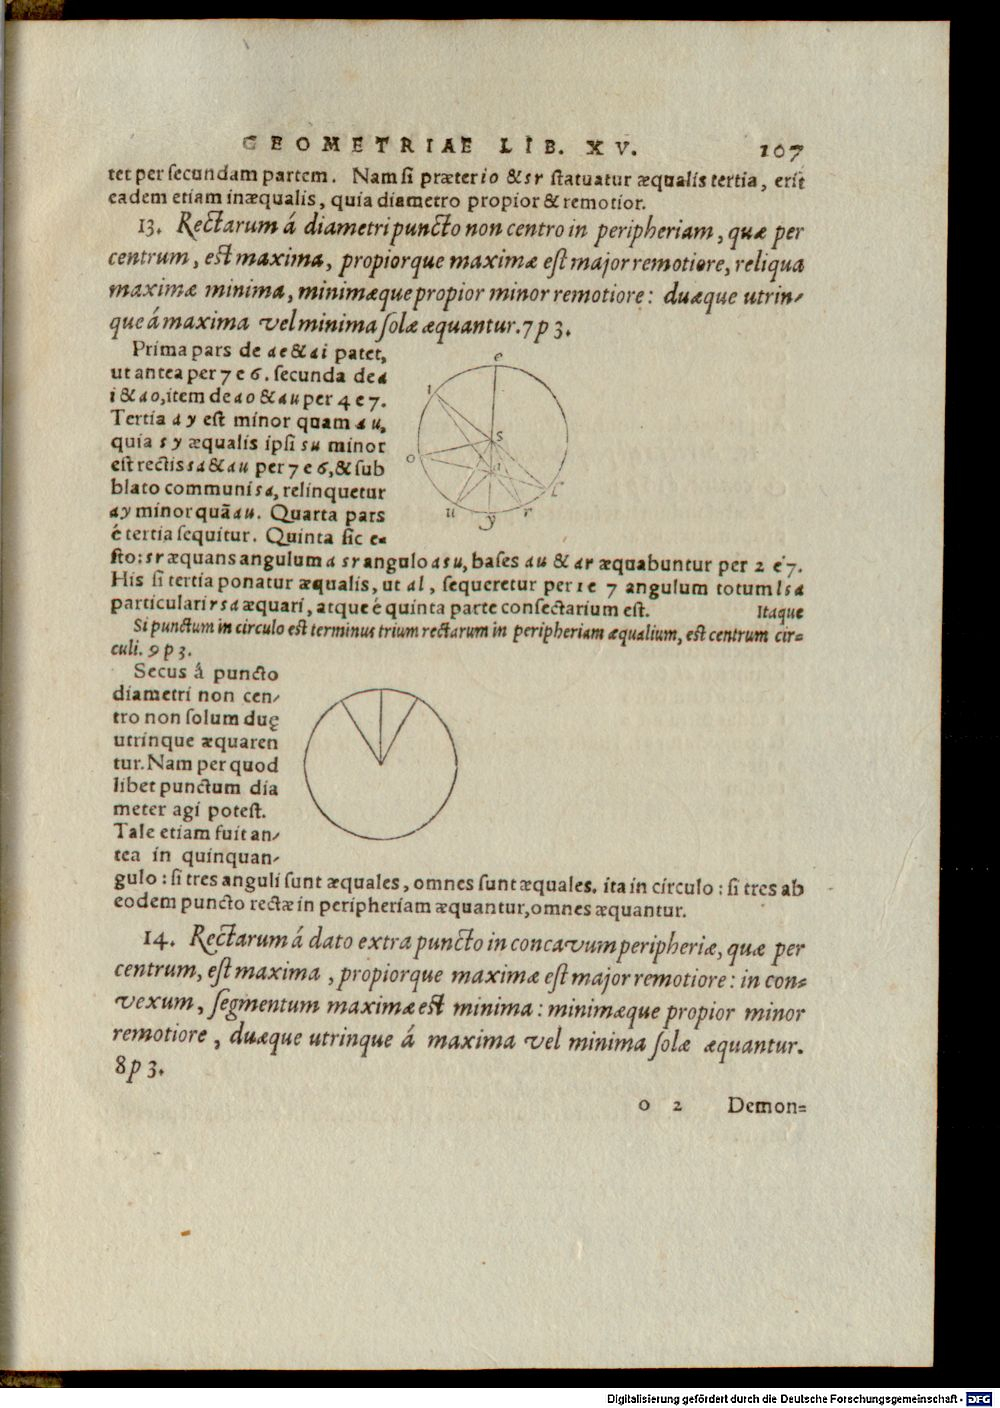 GEOMETRIAE LIB. XV. 107
tet per secundam partem. Nam si præter io & sr statuatur æqualis tertia, erit
eadem etiam inæqualis, quia diametro propior & remotior.
13. Rectarum á diametri puncto non centro in peripheriam, quæ per
centrum, est maxima, propiorque maximæ est major remotiore, reliqua
maximæ minima, minimæque propior minor remotiore: duæque utrin-
que á maxima vel minima solæ æquantur. 7 p 3.
Prima pars de ae & ai patet,
ut antea per 7 e 6. secunda de a
i & ao, item de ao & au per 4 e 7.
Tertia ay est minor quam au,
quia sy æqualis ipsi su minor
est rectis sa & au per 7 e 6, & sub
blato communi sa, relinquetur
ay minor quã au. Quarta pars
é tertia sequitur. Quinta sic e-
sto: sr æquans angulum a sr angulo asu, bases au & ar æquabuntur per 2 e 7.
His si tertia ponatur æqualis, ut al, sequeretur per 1 e 7 angulum totum lsa
particulari rsa æquari, atque é quinta parte consectarium est. Itaque
Si punctum in circulo est terminus trium rectarum in peripheriam æqualium, est centrum cir-
culi. 9 p 3.
Secus á puncto
diametri non cen-
tro non solum duę
utrinque æquaren
tur. Nam per quod
libet punctum dia
meter agi potest.
Tale etiam fuit an-
tea in quinquan-
gulo: si tres anguli sunt æquales, omnes sunt æquales. ita in circulo: si tres ab
eodem puncto rectæ in peripheriam æquantur, omnes æquantur.
14. Rectarum á dato extra puncto in concavum peripheriæ, quæ per
centrum, est maxima, propiorque maximæ est major remotiore: in con-
vexum, segmentum maximæ est minima: minimæque propior minor
remotiore, duæque utrinque á maxima vel minima solæ æquantur.
8 p 3.
o 2 Demon-
e
i
s
o
l
u
y
r
Digitalisierung gefördert durch die Deutsche Forschungsgemeinschaft - DFG